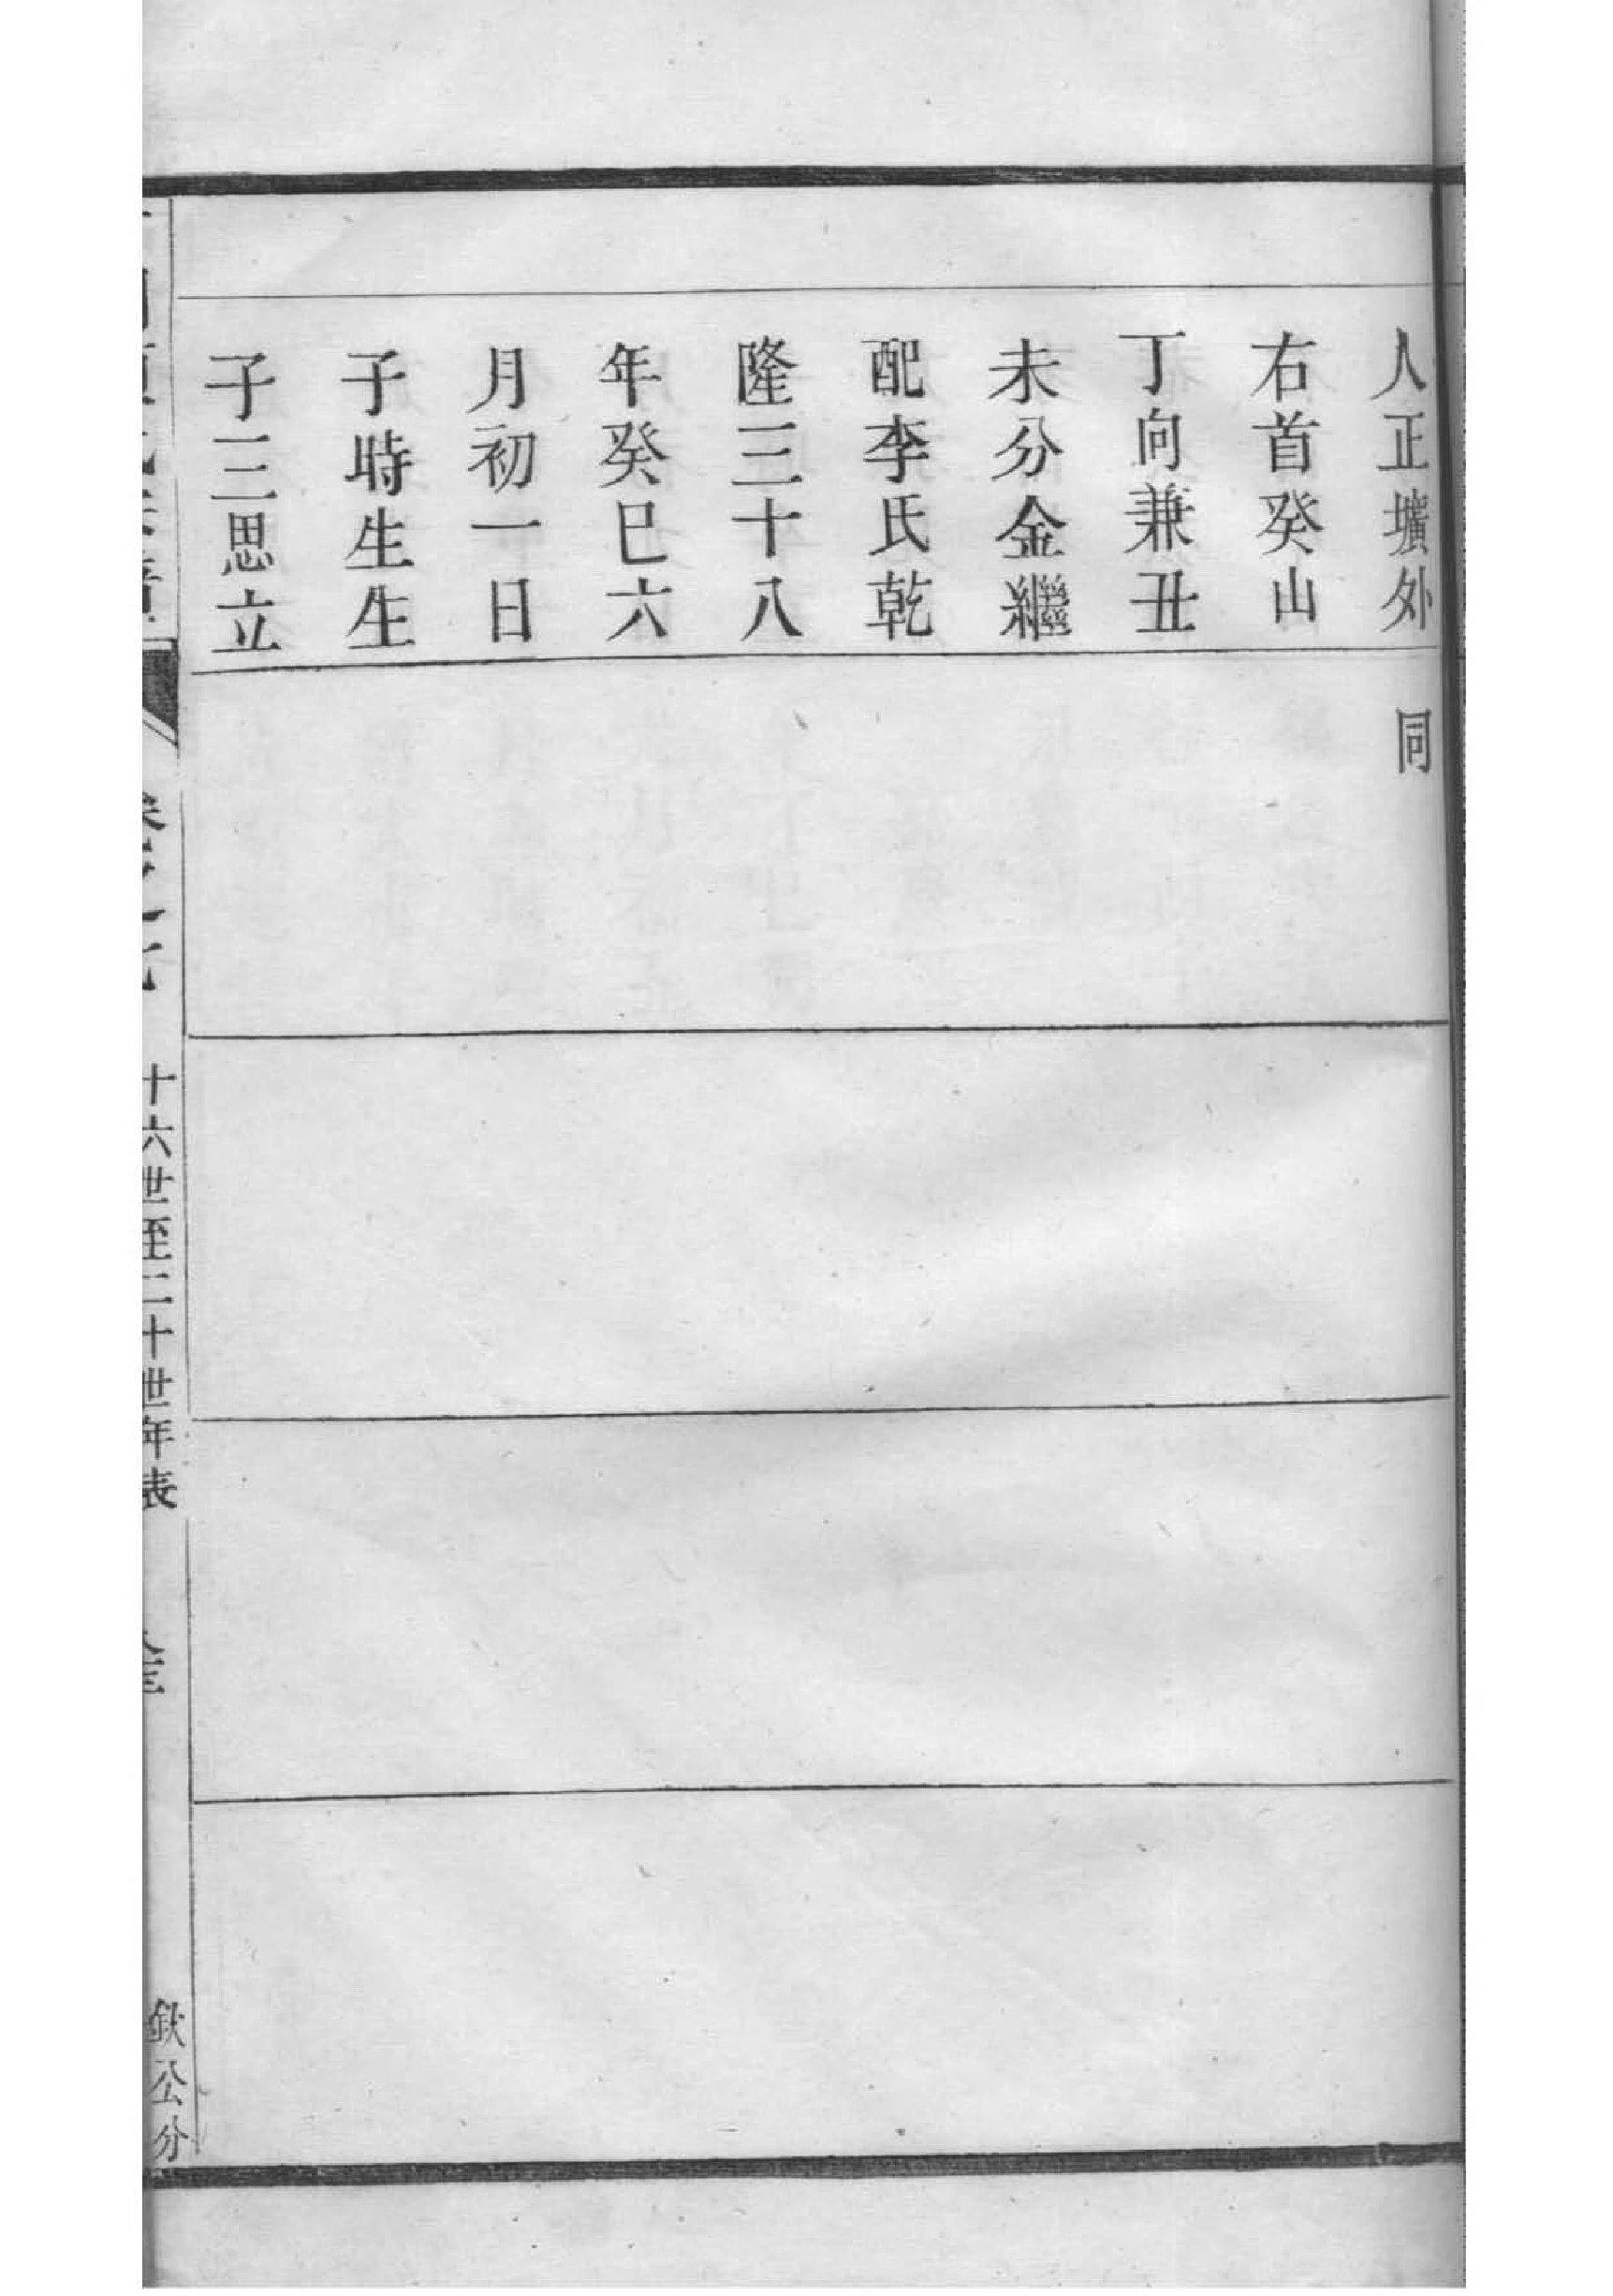 人正壙外
右首癸山
丁向兼丑
未分金繼
配李氏乾
隆三十八
年癸巳六
月初一日
子時生生
子三思立
同
十六世至二十世年表
欽公分